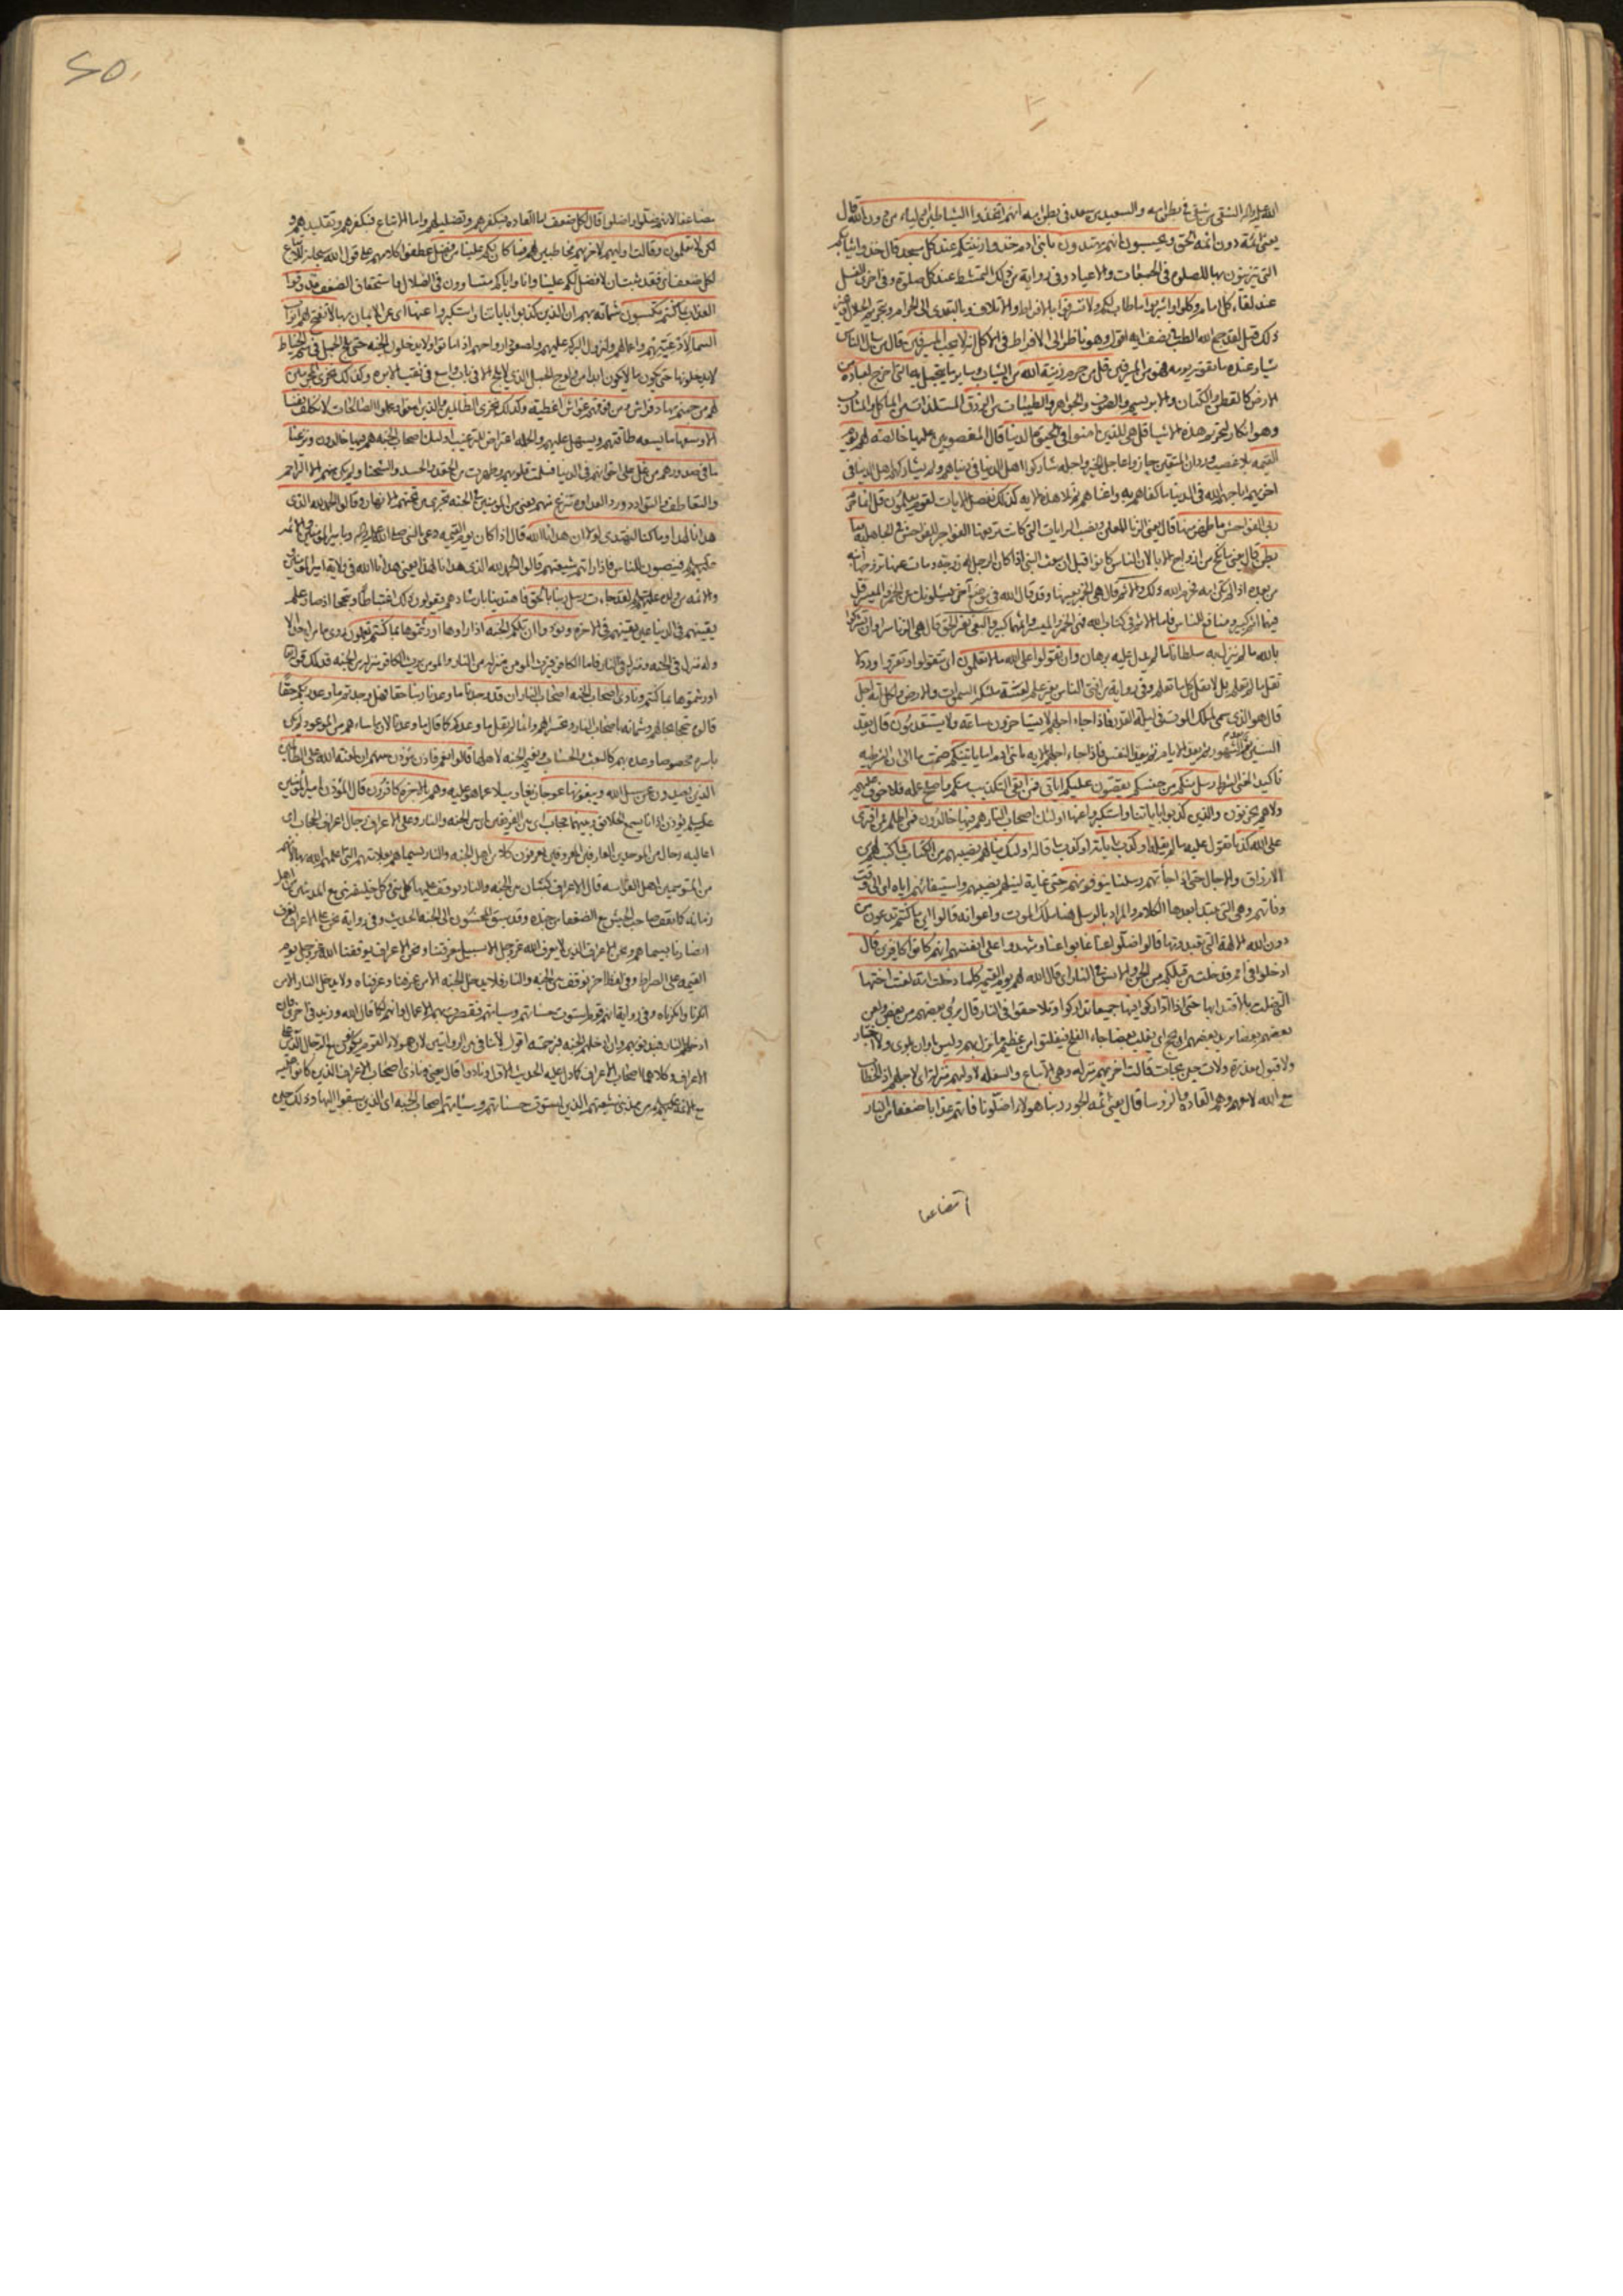 الله عليه واله الشقي من شقي في بطن امه والسعيد من سعد في بطن امه انهم اتخذوا الشياطين اولياء من دون الله قال
يعني ائمة دون ائمة الحق ويحسبون انهم مهتدون يا بني ادم خذوا زينتكم عند كل مسجد قال خذوا ثيابكم
التي تتزينون بها للصلوة في الجمعات والاعياد وفي رواية من ذلك التمشط عند كل صلوة وفي اخرى الغسل
عند لقاء كل امام وكلوا واشربوا ما طاب لكم ولا تسرفوا بالافراط والاتلاف وبالتعدي الى الحرام وتحريم الحلال
لقد جمع الله الطب في نصف اية اقول وهو ناظر الى الافراط في الاكل انه لا يحب المسرفين قال من سال الناس
شيئا وعنده ما يقوته يومه فهو من المسرفين قل من حرم زينة الله من الثياب وساير ما يتجمل به التي اخرج لعباده من
الارض كالقطن والكتان والابريسم والصوف والجواهر والطيبات من الرزق المستلذات من الماكل والمشارب
وهو انكار لتحريم هذه الاشيا قل هي للذين امنوا في الحيوة الدنيا قال المغصوبين عليها خالصة لهم يوم
القيمة بلا غصب وردان المتقين حازوا عاجل الخير واجله شاركوا اهل الدنيا في دنياهم ولم يشاركهم اهل الدنيا في
اخرتهم اباحهم الله في الدنيا ما كفاهم به واغناهم ثم تلا هذه الاية كذلك نفصل الايات لقوم يعلمون قل انما حرم
ربي الفواحش ما ظهر منها قال يعني الزنا المعلن ونصب الرايات التي كانت ترفعها الفواجر للفواحش في الجاهلية وما
بطن قال يعني ما نكح من ازواج الابا لان الناس كانوا قبل ان يبعث النبي اذا كان للرجل زوجة ومات عنها تزوجها ابنه
من بعده اذا لم تكن امه فحرم الله ذلك والاثم قال هي الخمر بعينها وقد قال الله في موضع اخر يسئلونك عن الخمر والميسر قل
فيهما اثم كبير ومنافع للناس فاما الاثم في كتاب الله فهي الخمر والميسر واثمهما كبير والبغي بغير الحق قال هي الزنا سرا وان تشركوا
بالله ما لم ينزل به سلطانا ما لم يدل عليه برهان وان تقولوا على الله ما لا تعلمون ان تتقولوا وتفتروا وورد لا
تقل ما لم تعلم بل لا تقل كل ما تعلم وفي رواية من افتى الناس بغير علم لعنته ملئكة السموات والارض ولكل امة اجل
قال هو الذي سمي لملك الموت في ليلة القدر فاذا جاء اجلهم لا يستاخرون ساعة ولا يستقدمون قال تعد
السنين ثم تعد الشهور ثم تعد الايام ثم تعد النفس فاذا جاء اجلهم الاية يا بني ادم اما ياتينكم ضمت ما الى ان الشرطية
تاكيدا لمعنى الشرط رسل منكم من جنسكم يقصون عليكم اياتي فمن اتقى التكذيب منكم واصلح عمله فلا خوف عليهم
ولا هم يحزنون والذين كذبوا باياتنا واستكبروا عنها اولئك اصحاب النار هم فيها خالدون فمن اظلم ممن افترى
على الله كذبا تقول عليه ما لم يقله او كذب باياته او كذب ما قاله اولئك ينالهم نصيبهم من الكتاب ما كتب لهم من
الارزاق والاجال حتى اذا جاءتهم رسلنا يتوفونهم حتى غاية لنيلهم نصيبهم واستيفائهم اياه اي الى وقت
وفاتهم وهي التي يبتدا بعدها الكلام والمراد بالرسل هنا ملك الموت واعوانه قالوا اين ما كنتم تدعون من
دون الله الالهة التي تعبدونها قالوا ضلوا عنا غابوا عنا وشهدوا على انفسهم انهم كانوا كافرين قال
ادخلوا في امم قد خلت من قبلكم من الجن والانس في النار اي قال الله لهم يوم القيمة كلما دخلت امة لعنت اختها
التي ضلت بالاقتداء بها حتى اذا اداركوا فيها جميعا تداركوا وتلاحقوا في النار قال برئ بعضهم من بعض ولعن
بعضهم بعضا يريد بعضهم ان يحج بعضا رجاء الفلج فيفلتوا من عظيم ما نزل بهم وليس باوان بلوى ولا اختبار
ولا قبول معذرة ولات حين نجات قالت اخريهم منزلة وهي الاتباع والسفلة لاوليهم منزلة اي لاجلهم اذ الخطاب
مع الله لا معهم وهم القادة والرؤسا قال يعني ائمة الجور ربنا هؤلاء اضلونا فاتهم عذابا ضعفا من النار
مضاعفا لانهم ضلوا واضلوا قال لكل ضعف اما القادة فبكفرهم وتضليلهم واما الاتباع فبكفرهم وتقليدهم و
لكن لا تعلمون وقالت اوليهم لاخريهم مخاطبين لهم فما كان لكم علينا من فضل عطفوا كلامهم على قول الله سبحانه للاتباع
لكل ضعف اي فقد ثبت ان لا فضل لكم علينا وانا واياكم متساوون في الضلال واستحقاق الضعف فذوقوا
العذاب بما كنتم تكسبون شماتة بهم ان الذين كذبوا باياتنا واستكبروا عنها اي عن الايمان بها لا تفتح لهم ابواب
السماء لادعيتهم واعمالهم ولنزول البركة عليهم ولصعود ارواحهم اذا ماتوا ولا يدخلون الجنة حتى يلج الجمل في سم الخياط
لا يدخلونها حتى يكون ما لا يكون ابدا من ولوج الجمل الذي لا يلج الا في باب واسع في ثقب الابرة وكذلك نجزي المجرمين
لهم من جهنم مهاد فراش ومن فوقهم غواش اغطية وكذلك نجزي الظالمين والذين امنوا وعملوا الصالحات لا نكلف نفسا
الا وسعها ما يسعه طاقتهم ويسهل عليهم والجملة اعتراض للترغيب اولئك اصحاب الجنة هم فيها خالدون ونزعنا
ما في صدورهم من غل على اخوانهم في الدنيا فسلمت قلوبهم وطهرت من الحقد والحسد والشحنا ولم يكن بينهم الا التراحم
والتعاطف والتوادد وورد العداوة تنزع منهم يعني من المؤمنين في الجنة تجري من تحتهم الانهار وقالوا الحمد لله الذي
هدانا لهذا وما كنا لنهتدي لولا ان هدانا الله قال اذا كان يوم القيمة دعي بالنبي صلى الله عليه واله وبامير المؤمنين وبالائمة
عليهم السلم فينصبون للناس فاذا راتهم شيعتهم قالوا الحمد لله الذي هدانا لهذا يعني هدانا الله في ولاية امير المؤمنين
والائمة من ولده عليهم السلم لقد جاءت رسل ربنا بالحق فاهتدينا بارشادهم يقولون ذلك اغتباطا وتبجحا اذ صار علم
يقينهم في الدنيا عين يقينهم في الاخرة ونودوا ان تلكم الجنة اذا راوها اورثتموها بما كنتم تعملون روي ما من احد الا
وله منزل في الجنة ومنزل في النار فاما الكافر فيرث المؤمن منزله من النار والمؤمن يرث الكافر منزله من الجنة فذلك قوله
اورثتموها بما كنتم ونادى اصحاب الجنة اصحاب النار ان قد وجدنا ما وعدنا ربنا حقا فهل وجدتم ما وعد ربكم حقا
قالوه تبجحا بحالهم وشماتة باصحاب النار وتحسرا لهم وانما لم يقل ما وعدكم كما قال ما وعدنا لان ما ساءهم من الموعود لم يكن
باسره مخصوصا وعده بهم كالبعث والحساب ونعيم الجنة لاهلها قالوا نعم فاذن مؤذن بينهم ان لعنة الله على الظالمين
الذين يصدون عن سبيل الله ويبغونها عوجا زيغا وميلا عما هو عليه وهم بالاخرة كافرون قال المؤذن امير المؤمنين
عليه السلم يؤذن اذانا يسمع الخلائق وبينهما حجاب اي بين الفريقين او بين الجنة والنار وعلى الاعراف رجال اعراف الحجاب اي
اعاليه رجال من الموحدين العارفين المعروفين يعرفون كلا من اهل الجنة والنار بسيماهم بعلامتهم التي اعلمهم الله بها لانهم
من المتوسمين اهل الفراسة قال الاعراف كثبان بين الجنة والنار يوقف عليها كل نبي وكل خليفة نبي مع المذنبين من اهل
زمانه كما يقف صاحب الجيش مع الضعفاء من جنده وقد سبق المحسنون الى الجنة الحديث وفي رواية نحن على الاعراف نعرف
انصارنا بسيماهم ونحن الاعراف الذين لا يعرف الله عز وجل الا بسبيل معرفتنا ونحن الاعراف يوقفنا الله عز وجل يوم
القيمة على الصراط وفي لفظ اخر نوقف بين الجنة والنار فلا يدخل الجنة الا من عرفنا وعرفناه ولا يدخل النار الا من
انكرنا وانكرناه وفي رواية انهم قوم استوت حسناتهم وسياتهم فقصرت بهم الاعمال وانهم لكما قال الله وزيد في اخرى فان
ادخلهم النار فبذنوبهم وان ادخلهم الجنة فبرحمته اقول لا تنافي بين الروايتين لان هؤلاء القوم يكونون مع الرجال الذين على
الاعراف وكلاهما اصحاب الاعراف كما دل عليه الحديث الاول ونادوا قال يعني ونادى اصحاب الاعراف الذين كانوا عليه
مع الائمة عليهم السلم من مذنبي شيعتهم الذين استوت حسناتهم وسيئاتهم اصحاب الجنة اي الذين سبقوا اليها وذلك حين